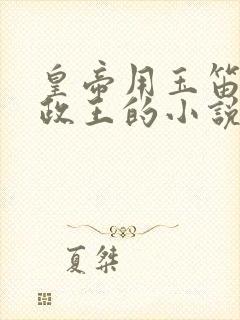 皇帝用玉笛
政王的小説
夏桀